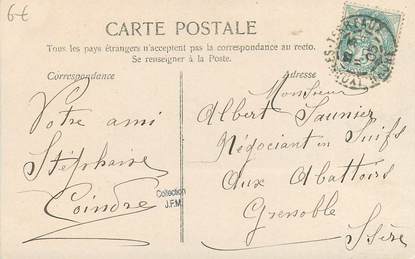 6€
CARTE POSTALE
Tous les pays étrangers n'acceptent pas la correspondance au recto.
Se renseigner à la Poste.
Correspondance
Adresse
Votre ami
Stéphane
Coindre
Collection
J.F.M.
Monsieur
Albert Saunier
Négociant en Suifs
Aux Abattoirs
Grenoble
Isère